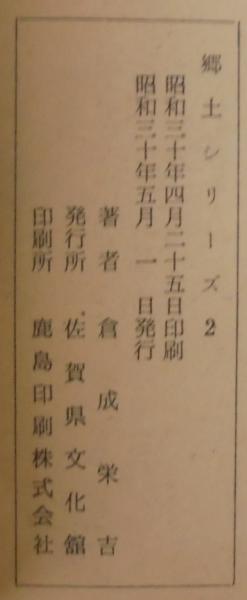 郷土シリーズ2
昭和三十年四月二十五日印刷
昭和三十年五月一日発行
著者 倉成栄吉
発行所 佐賀県文化館
印刷所 鹿島印刷株式会社